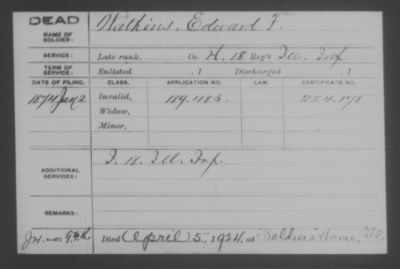 DEAD
NAME OF SOLDIER: Watkins, Edward F.
SERVICE: Late rank, Co. H, 18 Reg't Ill. Inf.
TERM OF SERVICE: Enlisted , 1 Discharged , 1
DATE OF FILING. CLASS. APPLICATION NO. LAW. CERTIFICATE NO.
1874 Jan 2 Invalid, 189.485.
Widow,
Minor,
ADDITIONAL SERVICES: I. 18. Ill. Inf.
REMARKS:
Died April 5, 1924, at Soldiers Home,